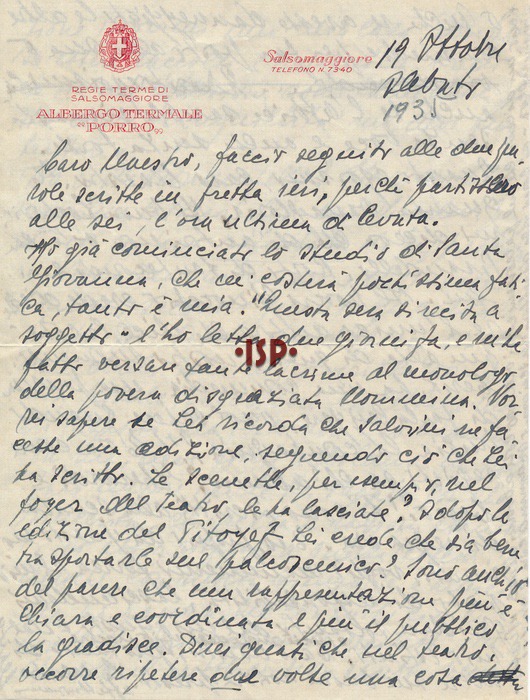 REGIE TERME DI
SALSOMAGGIORE
ALBERGO TERMALE
"PORRO"
Salsomaggiore
TELEFONO N. 7340
19 Ottobre
Sabato
1935
Caro Maestro, faccio seguito alle due pa-
role scritte in fretta ieri, perchè partissero
alle sei, l'ora ultima di levata.
Ho già cominciato lo studio di Santa
Giovanna, che mi costerà pochissima fati-
ca, tanto è mia. "Questa sera si recita a
soggetto" l'ho letta due giorni fa, e mi ha
fatto versare tante lacrime al monologo
della povera disgraziata Mommina. Vor-
rei sapere se Lei ricorda che Salvini ne fa-
cesse una edizione, seguendo ciò che Lei
ha scritto. Le scenette, per esempio, nel
foyer del Teatro, le ha lasciate? Dopo le
edizione del Pitoyef Lei crede che sia bene
trasportarle sul palcoscenico? Sono anch'io
del parere che una rappresentazione più è
chiara e coordinata e più il pubblico
la gradisce. Direi quasi che nel teatro,
occorre ripetere due volte una cosa
ISP